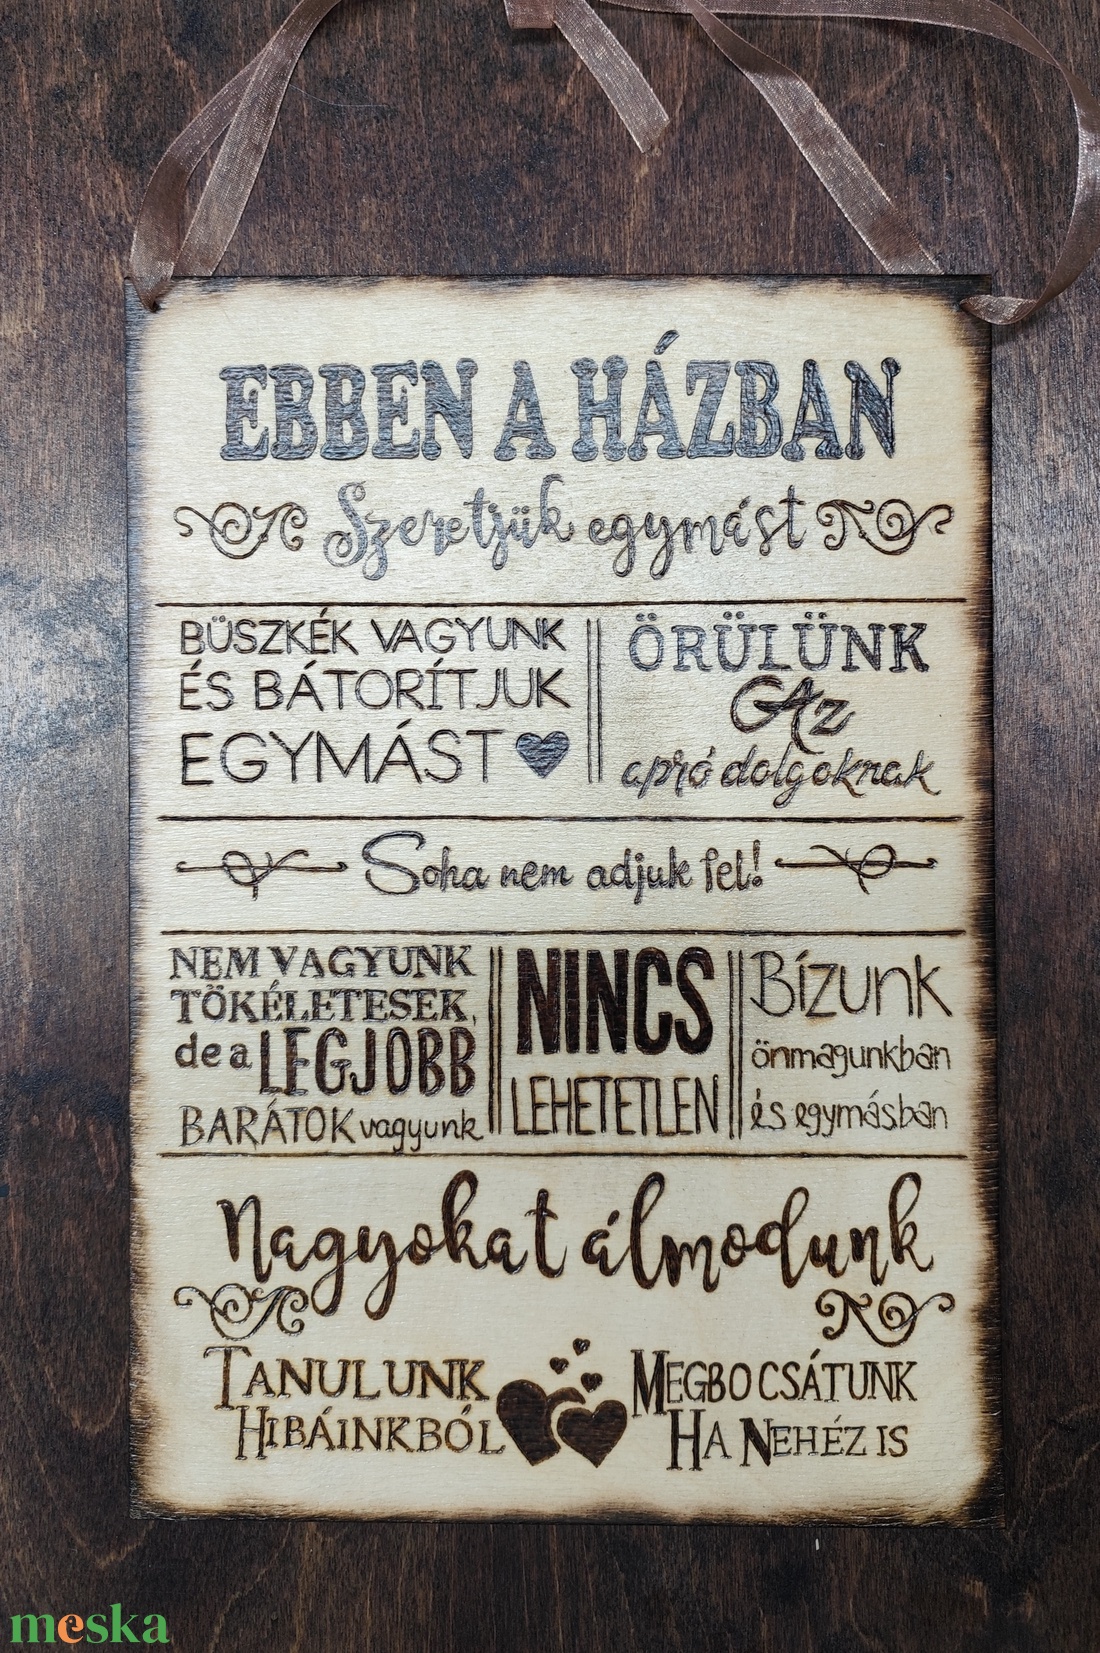 EBBEN A HÁZBAN
Szeretjük egymást
BÜSZKÉK VAGYUNK
ÉS BÁTORÍTJUK
EGYMÁST
ÖRÜLÜNK
Az
apró dolgoknak
Soha nem adjuk fel!
NEM VAGYUNK
TÖKÉLETESEK,
de a LEGJOBB
BARÁTOK vagyunk
NINCS
LEHETETLEN
Bízunk
önmagunkban
és egymásban
Nagyokat álmodunk
TANULUNK
HIBÁINKBÓL
MEGBOCSÁTUNK
HA NEHÉZ IS
meska